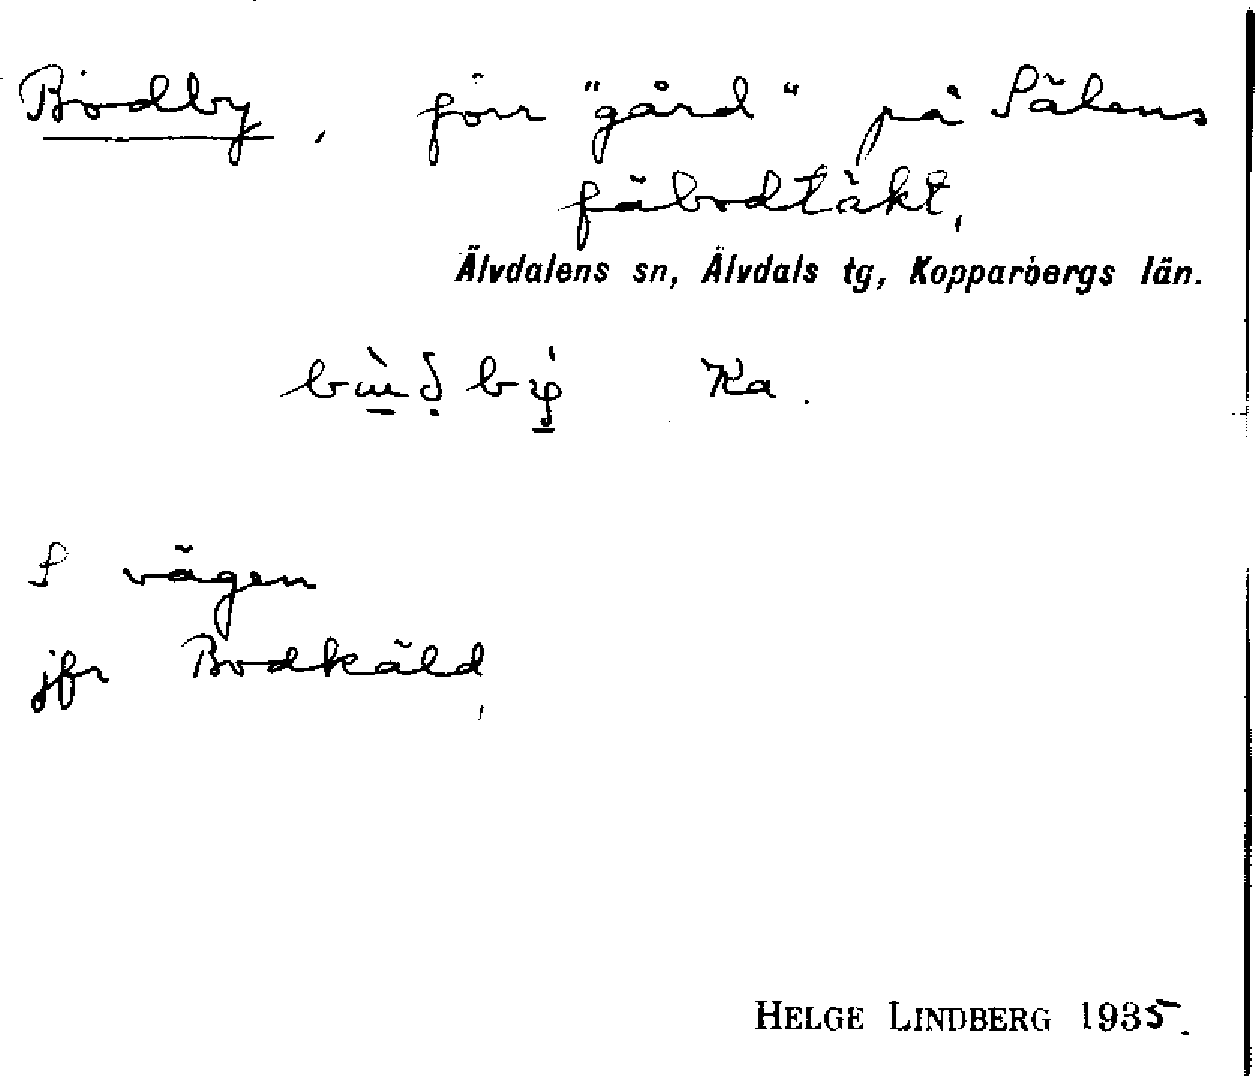 Bodby, förr "gård" på Sälens
fäbodtäkt,
Älvdalens sn, Älvdals tg, Kopparbergs län.
Ka.
S vägen
jfr Bodkäld,
HELGE LINDBERG 1935.